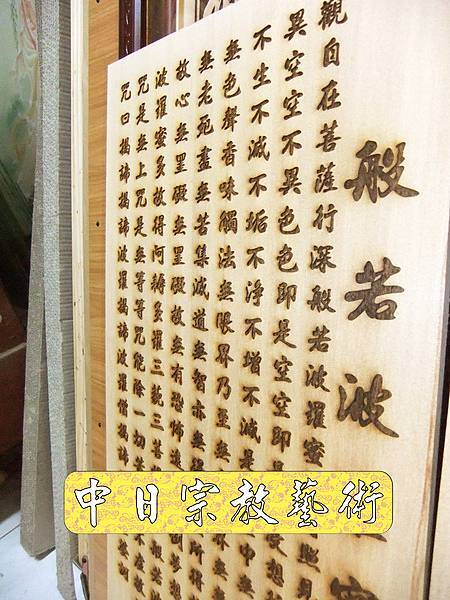 般若波
觀自在菩薩行深般若波羅蜜
異空空不異色色即是空空即是
不生不滅不垢不淨不增不減是
無色聲香味觸法無眼界乃至無
無老死盡無苦集滅道無智亦無
故心無罣礙無罣礙故無有恐怖遠
波羅蜜多故得阿耨多羅三藐三菩
咒是無上咒是無等等咒能除一切苦
咒曰揭諦揭諦波羅揭諦波羅僧揭諦
中日宗教藝術